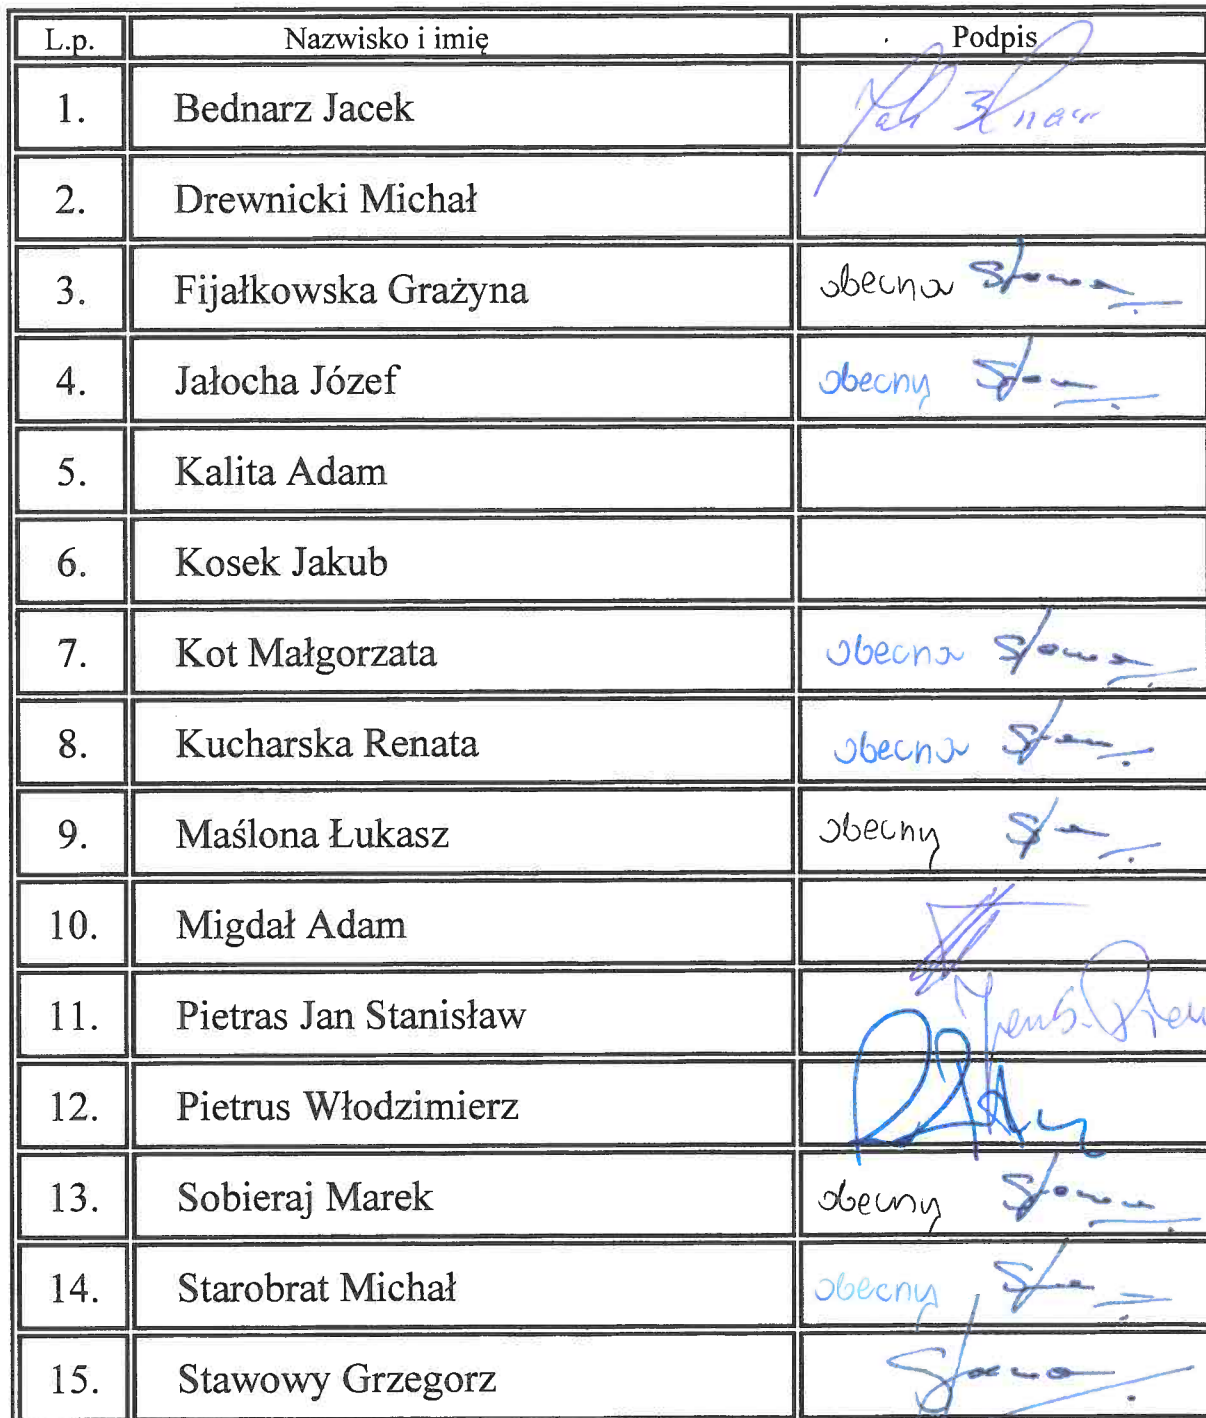 L.p. Nazwisko i imię Podpis
1. Bednarz Jacek
2. Drewnicki Michał
3. Fijałkowska Grażyna obecna
4. Jałocha Józef obecny
5. Kalita Adam
6. Kosek Jakub
7. Kot Małgorzata obecna
8. Kucharska Renata obecna
9. Maślona Łukasz obecny
10. Migdał Adam
11. Pietras Jan Stanisław
12. Pietrus Włodzimierz
13. Sobieraj Marek obecny
14. Starobrat Michał obecny
15. Stawowy Grzegorz